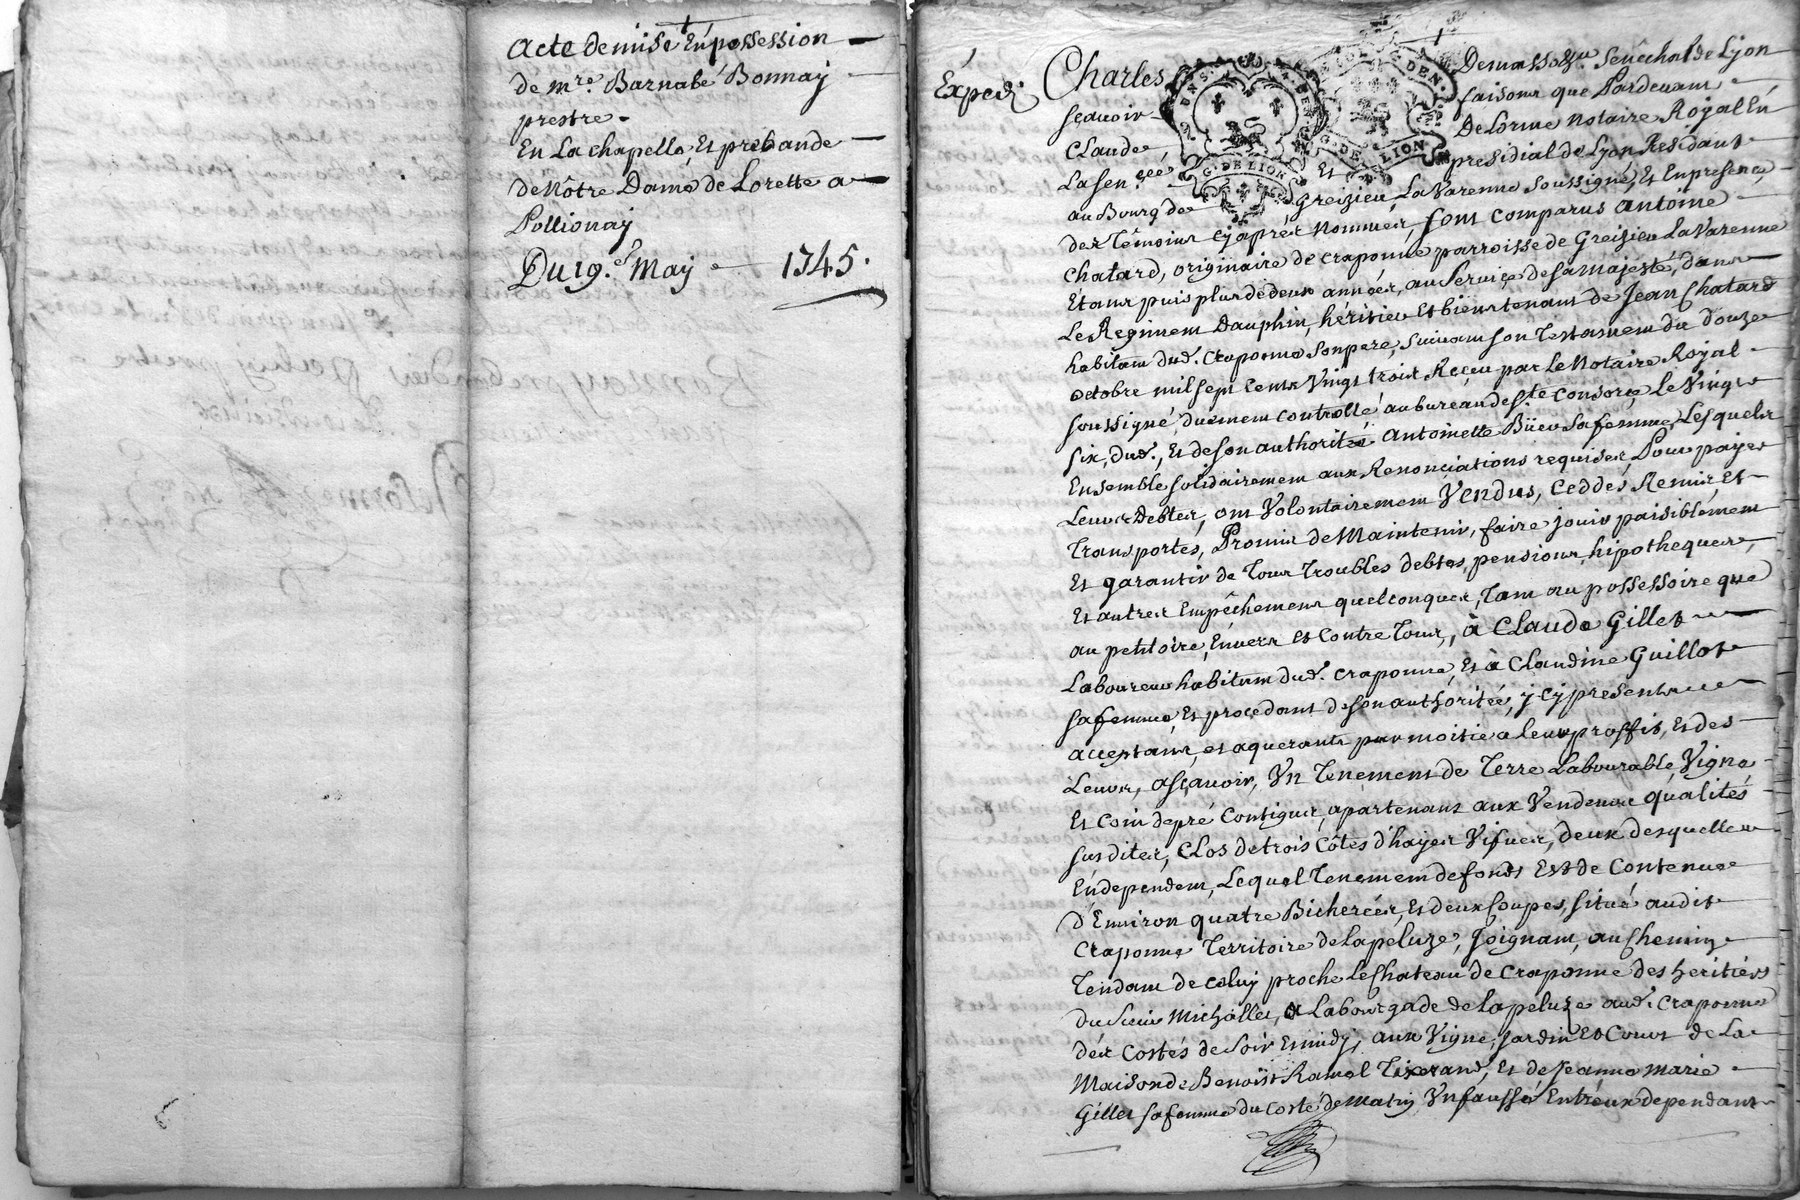 Acte de mise En possession
de mre. Barnabé Bonnay
prestre.
En La chapelle Et prebande
de Nôtre Dame de Lorette a
Pollionay
Du 19.e May 1745.
Exped
Charles Demasso Senêchal de Lyon
sçavoir faisons que Pardevant
Claude Delorme Notaire Royal En
La Sen.cée Et presidial de Lyon Residant
au Bourg de Greizieu La Varenne soussigné, Et En presence
des Témoins cy aprés Nommés, sont comparus antoine
Chatard, originaire de craponne parroisse de Greizieu La Varenne
Etant puis plus de deux années, au Service de sa majesté, dans
Le Regiment Dauphin, héritier Et bientenant de Jean Chatard
habitant dud. Craponne son pere, suivant son Testament du douze
octobre mil sept cents Vingt trois Reçeu par Le Notaire Royal
soussigné, duëment controllé au bureau de Ste Consorce Le Vingt
six, dud., Et de son authorité antoinette Biier sa femme, Lesquels
Ensemble solidairement aux Renonciations requises, Pour payer
Leurs Debtes, ont Volontairement Vendus, Ceddés Remis, Et
Transportés, Promis de Maintenir, faire jouir paisiblement
Et garantir de Tous Troubles debtes, pensions, hipotheques,
Et autres Empêchements quelconques, Tant au possessoire que
au petitoire, Envers Et Contre Tous, à Claude Gillet
Laboureur habitant dud. Craponne, Et à Claudine Guillot
sa femme Et procedant de son authorité, y cy presents
acceptants, et aquerants par moitié a leur proffit, Et des
Leurs, asçavoir, Un Tenement de Terre Labourable, Vigne
Et Coin de pré Contigus, apartenant aux Vendeurs qualités
susdites, Clos de trois Côtés d'hayes Vifves, deux desquelles
En dependent, Lequel Tenement de fonds Est de Contenue
d'Environ quatre Bicherées, Et deux Coupes, situé audit
Craponne Territoire de Lapeluze, Joignant, au Chemin
Tendant de celuy proche Le Chateau de Craponne des heritiers
du Sieur Michallet, a La bourgade de Lapeluze aud. Craponne
des Costés de soir Et midy, aux Vigne, Jardin Et Cours de La
Maison de Benoist Ramel Tixerand, Et de Jeanne Marie
Gillet sa femme du Costé de Matin Un faussé Entreux dependant
G. DE LION
G. DE LION